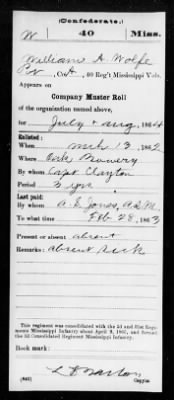 (Confederate.)
W 40 Miss.
William A. Wolfe
Pvt., Co. A, 40 Reg't Mississippi Vols.
Appears on
Company Muster Roll
of the organization named above,
for July & Aug, 1864
Enlisted:
When Mch 13, 1862
Where Oak Bowery
By whom Capt Clayton
Period 3 yrs
Last paid:
By whom A. E. Jones, A.Q.M.
To what time Feb 28, 1863
Present or absent absent
Remarks: absent sick
This regiment was consolidated with the 3d and 31st Regiments
Mississippi Infantry about April 9, 1865, and formed
the 3d Consolidated Regiment Mississippi Infantry.
Book mark:
(642) Copyist.